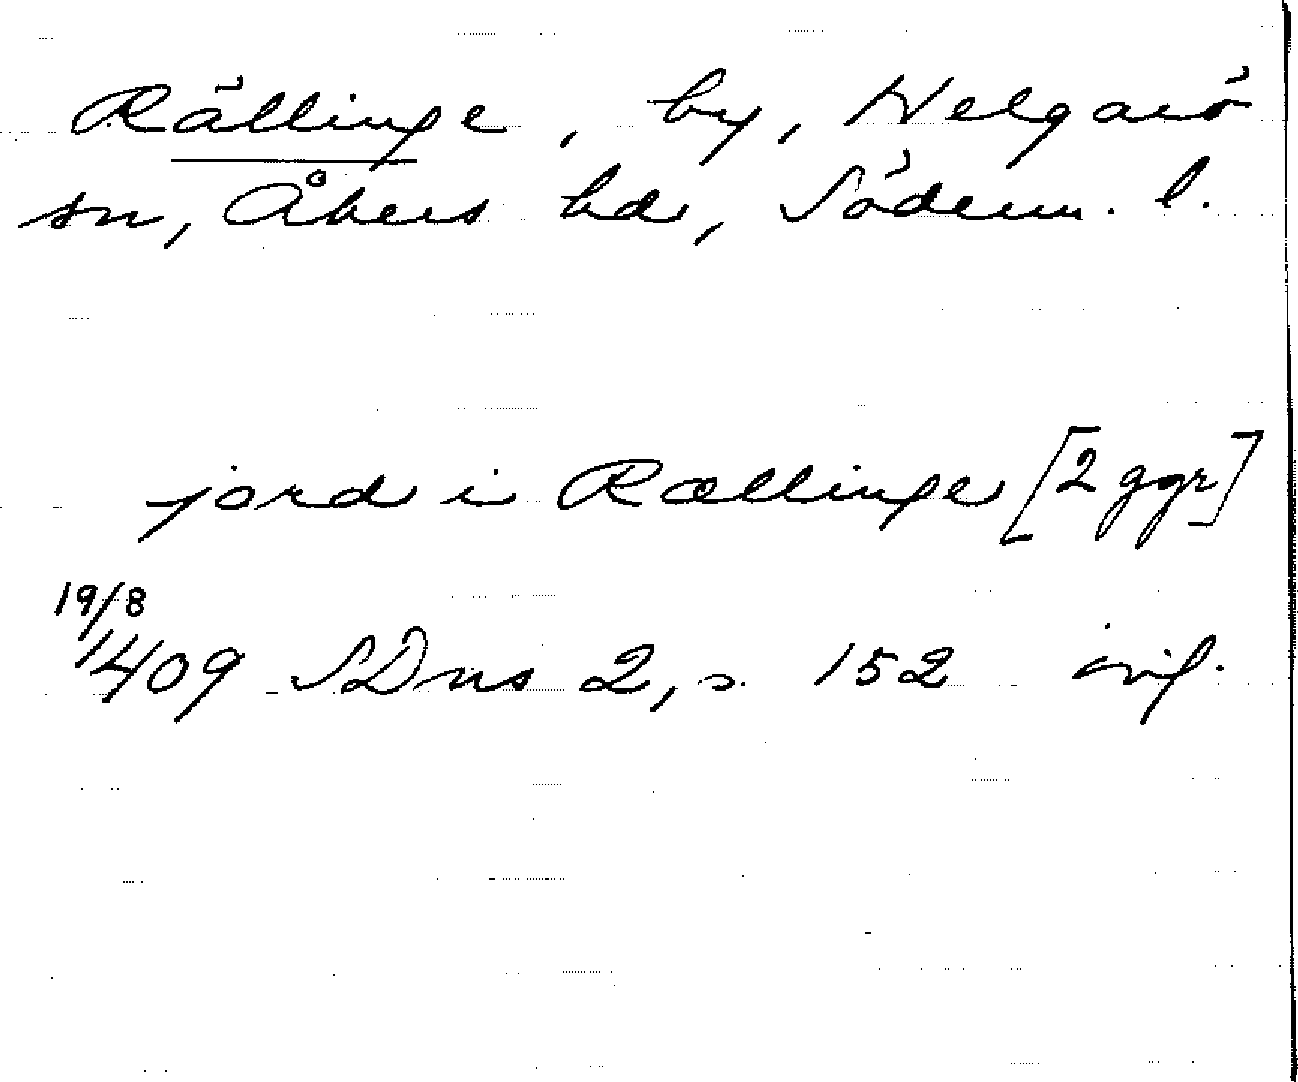 Rällinge, by, Helgarö
sn, Åkers hd, Söderm. l.
jord i Rællinge [2 ggr]
19/8
1409 SDns 2, s. 152 avf.